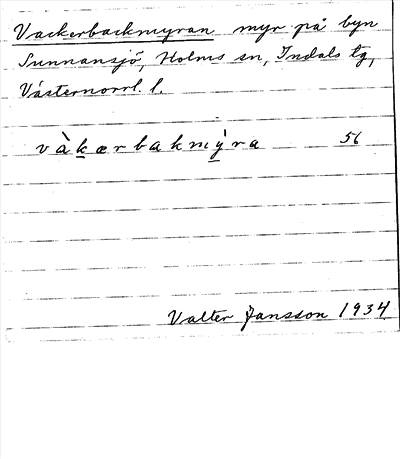 Vackerbackmyran myr på byn
Sunnansjö, Holms sn, Indals tg,
Västernorrl. l.
vàkærbakmy̍ra 56
Valter Jansson 1934